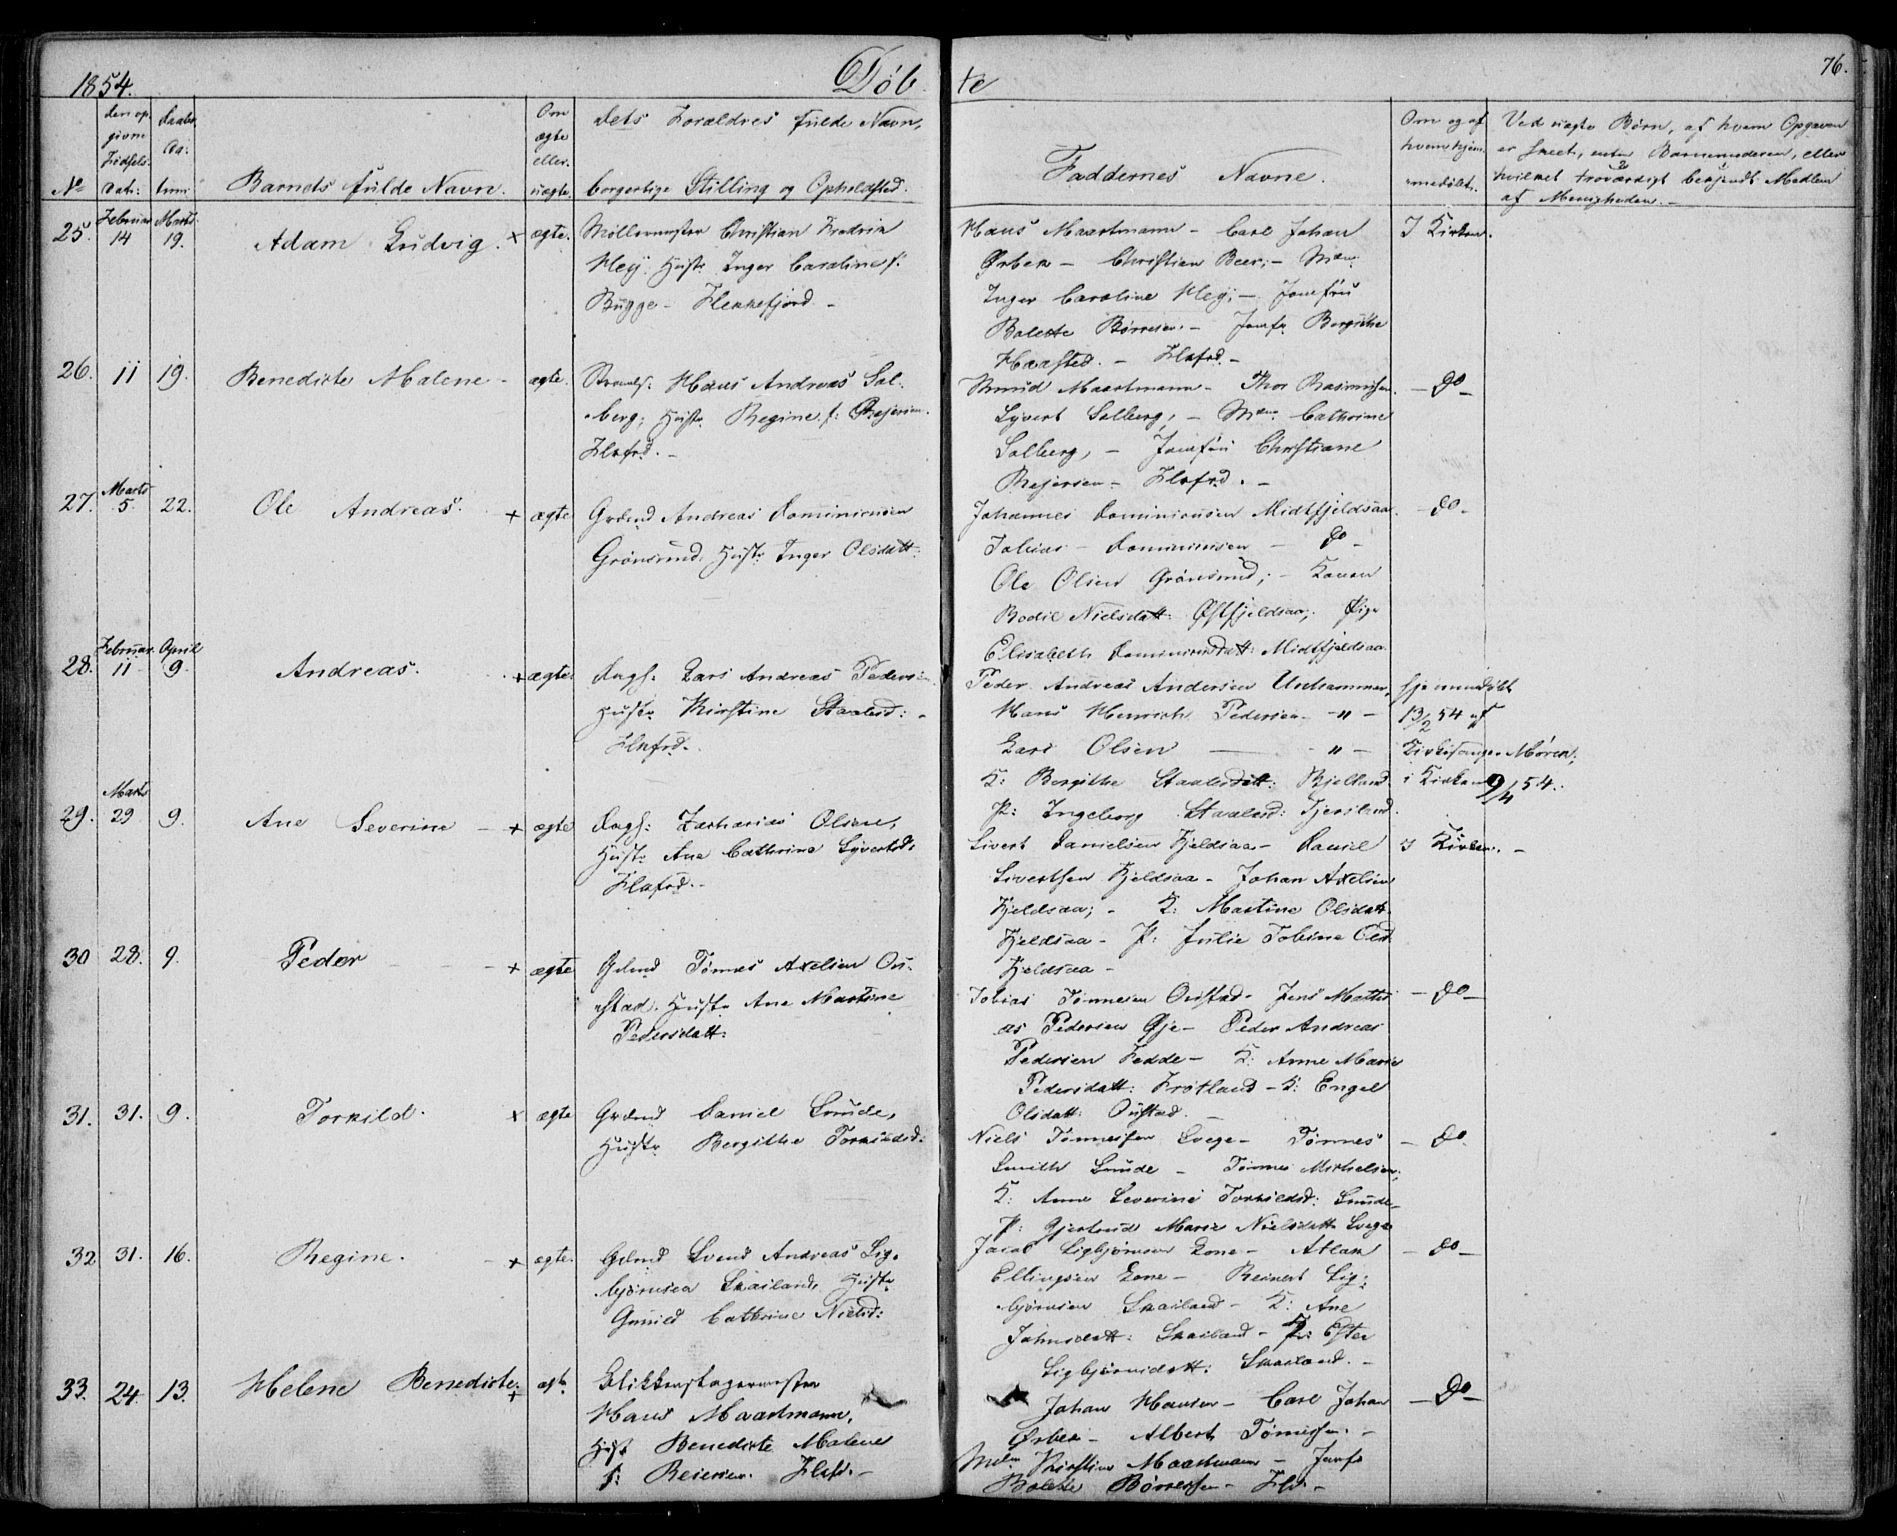 1854.
Døb
te
76.
No
den op
givne
Fødsels
Dat:
Daabs
Barnets fulde Navn.
Om
ægte
eller
uægte
dets Forældres fulde Navn,
borgerlige Stilling og Opholdsted.
Faddernes Navne.
Om og af
hvem hjem
medøbt.
Ved uægte Børn, af hvem Opgaven
er skeet, enten Barnemoderen, eller
hvilket troværdigt bekjendt Medlem
af Menigheden.
25. Februar 14 Marts 19. Adam Ludvig. + ægte.
Møllermester Christian Fredrik
Hustr Inger Caroline f:
Bugge - Flekkefjord -
Hans Maartmann - Carl Johan
Ørbek - Christian Beer; -
Inger Caroline - Jomfru
Balette Børresen. - Jomfr Bergithe
Flkfrd. -
I Kirken.
26. 11 19. Benedicte Malene - ægte.
Hans Andreas Sol-
berg, Hustr Regine f: Reiersen.
Flkfrd. -
Knud Maartmann - Thor Rasmussen
Syvert Solberg, - Cathrine
Solberg, - Jomfru Christiane
Reiersen - Flkfrd. -
- Do -
27. Marts 5. 22. Ole Andreas. + ægte
Grdmd Andreas Dominicusen
Grønsund, Hustr Inger Olsdatt:
Johannes Dominicusen Midtfjeldsaa.
Tobias - Dominicusen - Do -
Ole Olsen Grønsund; - Konen
Bodil Nielsdatt: Østfjeldsaa; Pige
Elisabeth Midtfjeldsaa.
- Do -
28. Februar 11 April 9. Andreas. + ægte
Dags: Lars Andreas Pedersen
Hustr Kirstine Staalesd: -
Flkfrd.
Peder Andreas Andersen Unhammer,
Hans Henrich Pedersen - " -
Lars Olsen - " -
K: Bergithe Staalesdatt: Kjelland.
P: Ingeborg Staalesd: Tjersland.
hjemmedøbt
13/2 54 af
Kirkesanger Møren;
i Kirken 9/4 54.
29. Marts 29 9. Ane Severine - + ægte
Dags: Zacharias Olsen,
Hustr Ane Cathrine Syvertsd:
Flkfrd. -
Sivert Danielsen Fjeldsaa - Daniel
Sivertsen Fjeldsaa - Johan Axelsen
Fjeldsaa; - K: Martine Olsdatt.
Fjeldsaa - P: Julie Tobine Olsd.
Fjeldsaa -
I Kirken. -
30 28. 9. Peder - + ægte
Grdmd Tønnes Axelsen Ou-
stad. Hustr Ane Martine
Pedersdatt:
Tobias Tønnesen Oustad - Jens Matthi
as Pedersen Gje - Peder Andreas
Pedersen Fedde - K: Anne Marie
Pedersdatt: Frøtland - K: Engel
Olsdatt: Oustad. -
- Do -
31. 31. 9. Torkild. + ægte
Grdmd Daniel Snude,
Hustr Bergithe Torkildsd:
Niels Tønnessen Svege - Tønnes
Smith Snude - Tønnes Michelsen,
K: Anne Severine Torkildsd: Snude,
P: Gjertrud Marie Nielsdatt. Svege
- Do -
32 31. 16. Regine. - + ægte.
Grdmd Svend Andreas Sig-
bjørnsen Skailand, Hustr
Gunild Cathrine Nielsd:
Jacob Sigbjørnsen Lone - Atlak
Ellingsen Lone - Reinert Sig-
bjørnsen Skailand - K: Ane
Johnsdatt: Skailand - P: Ester
Sigbjørnsdatt: Skailand. -
- Do -
33. 24. 13. Helene Benedicte. + ægte
Blikkenslagermester
Hans Maartmann,
Hust Benedicte Malene
f: Reiersen. Flkfd. -
Johan Hansen - Carl Johan
Ørbek - Albert Tønnessen. -
Kirstine Maartmann - Jomfr
Balette Børresen - Flkf. -
- Do -